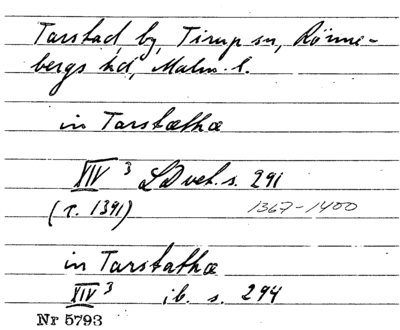 Tarstad, by, Tirup sn, Rönne-
bergs hd, Malm. l.
in Tarstæthæ
XIV 3 LDvet. s. 291
(r. 1391) 1367-1400
in Tarstathæ
XIV 3 ib. s. 294
Nr 5793